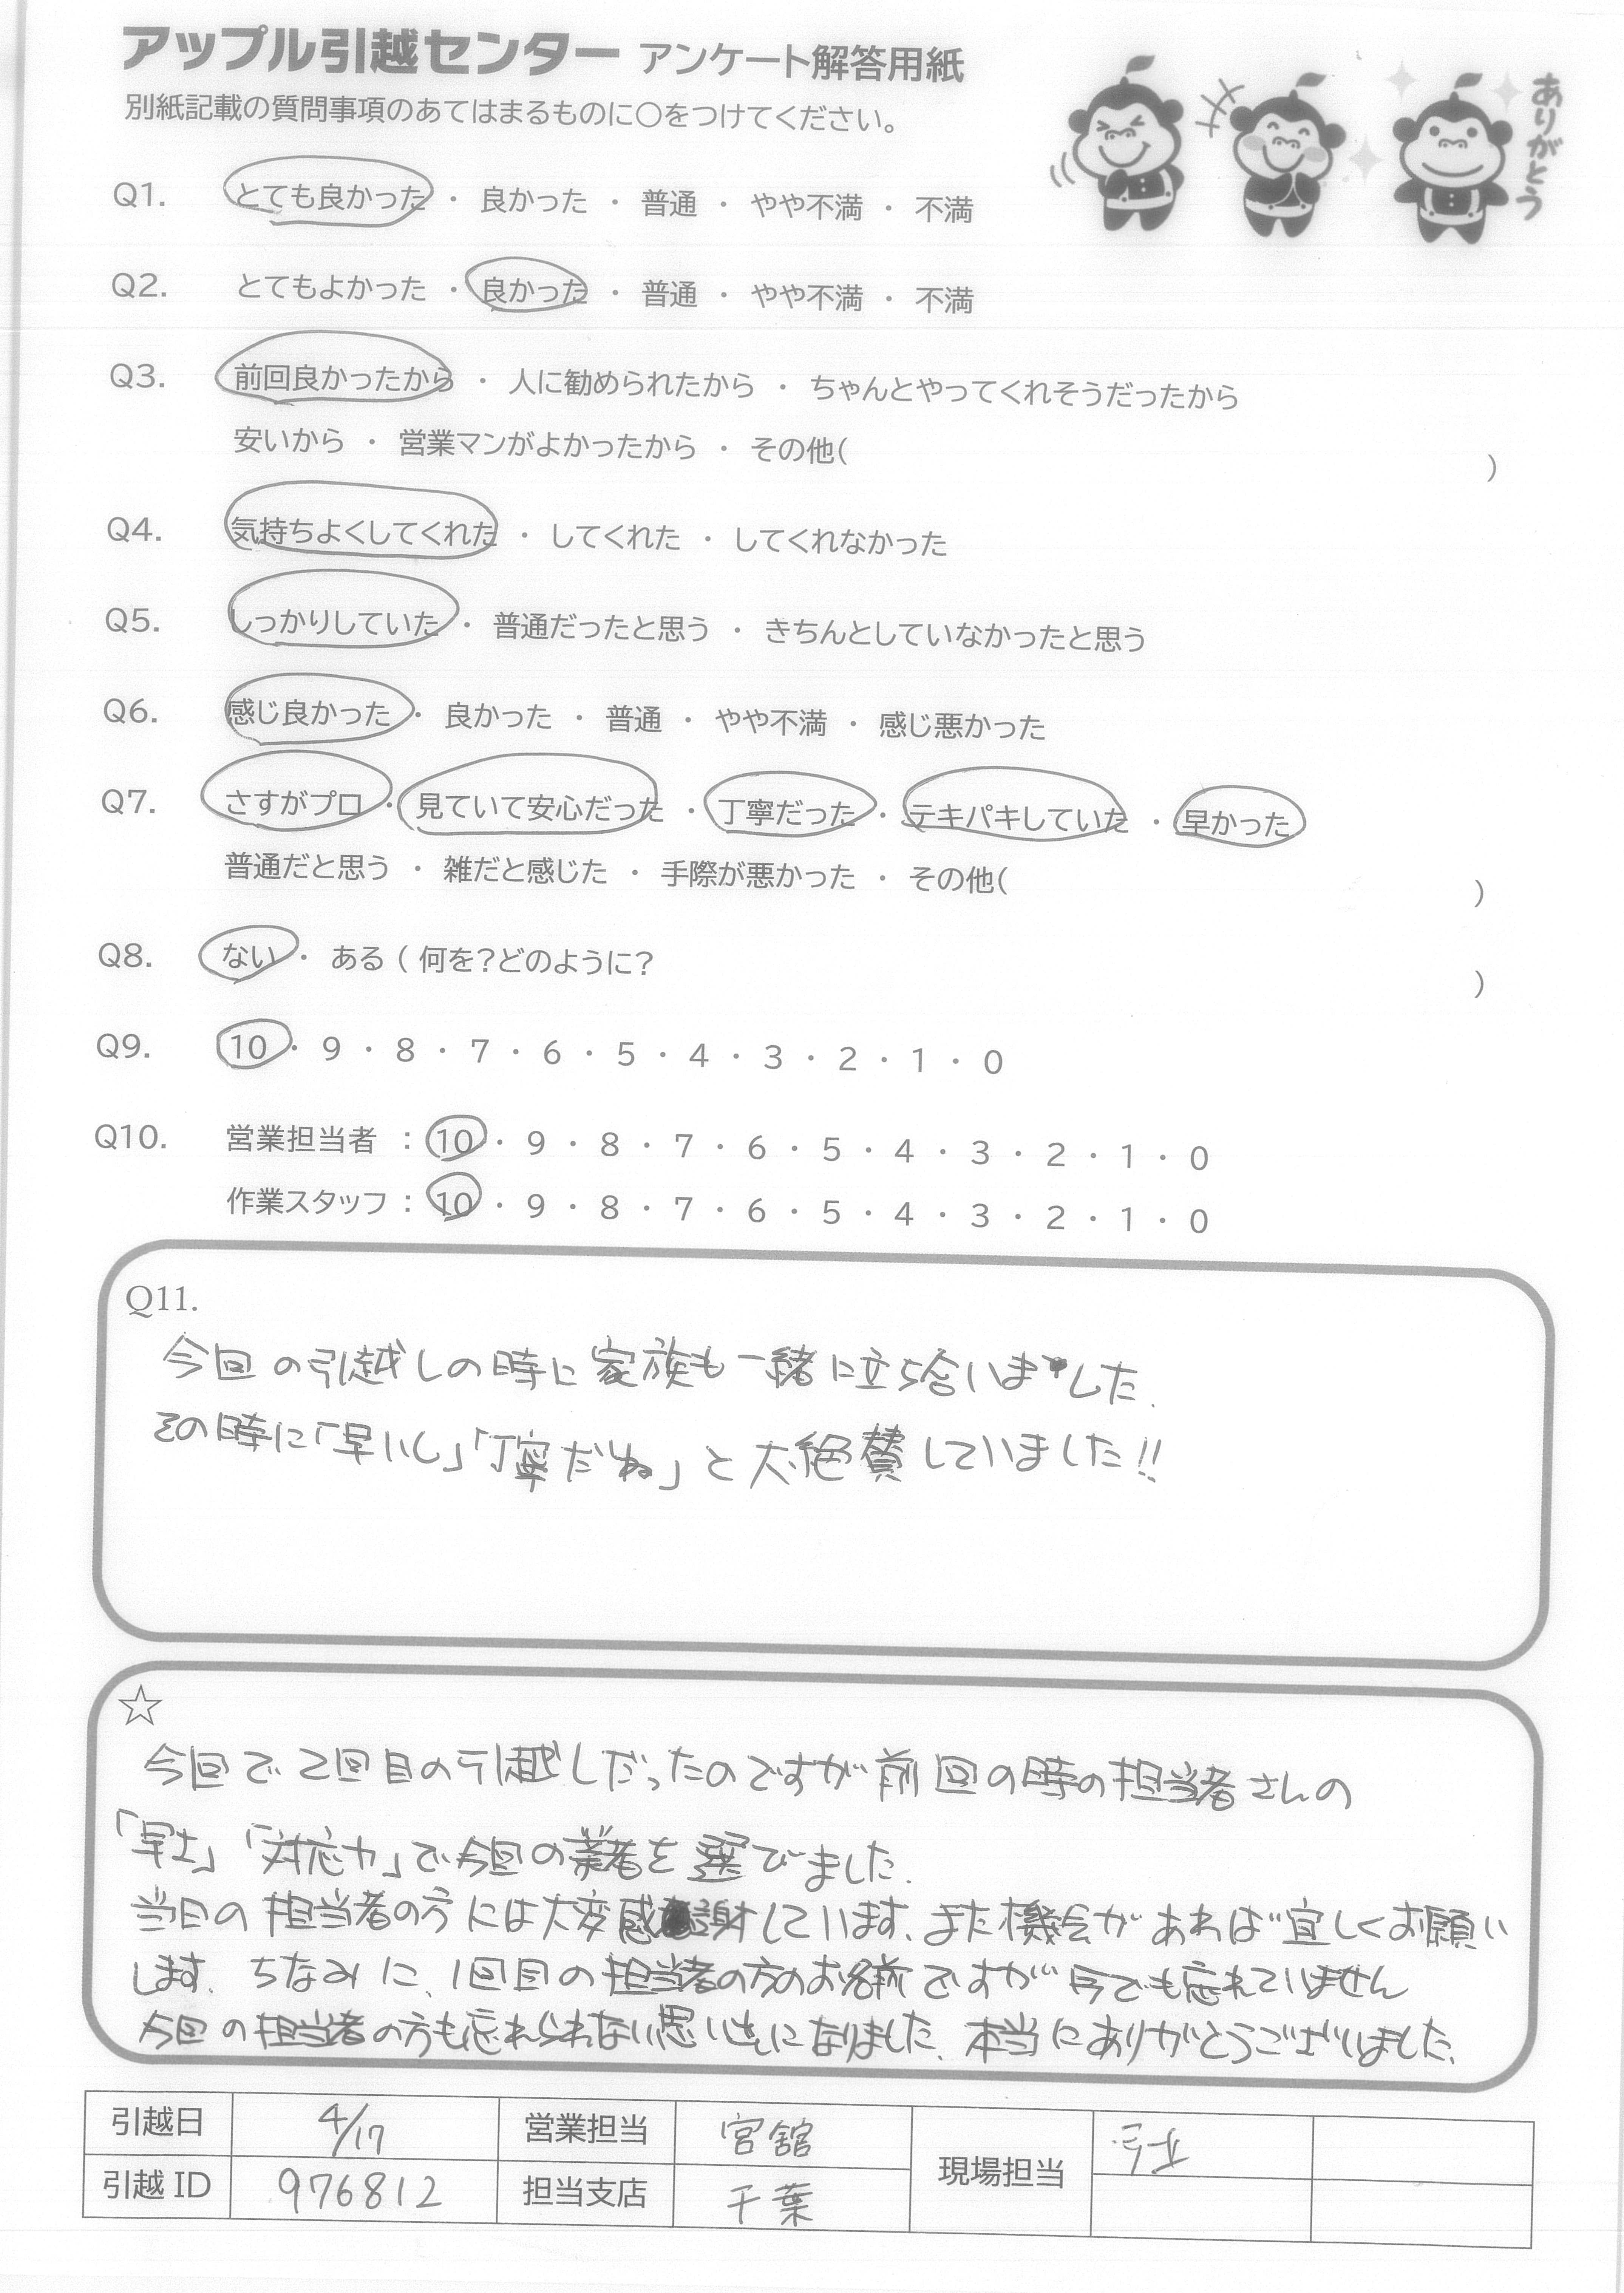 アップル引越センター アンケート解答用紙
別紙記載の質問事項のあてはまるものに○をつけてください。
ありがとう
Q1. とても良かった ・ 良かった ・ 普通 ・ やや不満 ・ 不満
Q2. とてもよかった ・ 良かった ・ 普通 ・ やや不満 ・ 不満
Q3. 前回良かったから ・ 人に勧められたから ・ ちゃんとやってくれそうだったから
安いから ・ 営業マンがよかったから ・ その他( )
Q4. 気持ちよくしてくれた ・ してくれた ・ してくれなかった
Q5. しっかりしていた ・ 普通だったと思う ・ きちんとしていなかったと思う
Q6. 感じ良かった ・ 良かった ・ 普通 ・ やや不満 ・ 感じ悪かった
Q7. さすがプロ ・ 見ていて安心だった ・ 丁寧だった ・ テキパキしていた ・ 早かった
普通だと思う ・ 雑だと感じた ・ 手際が悪かった ・ その他( )
Q8. ない ・ ある ( 何を?どのように? )
Q9. 10 ・ 9 ・ 8 ・ 7 ・ 6 ・ 5 ・ 4 ・ 3 ・ 2 ・ 1 ・ 0
Q10. 営業担当者 : 10 ・ 9 ・ 8 ・ 7 ・ 6 ・ 5 ・ 4 ・ 3 ・ 2 ・ 1 ・ 0
作業スタッフ : 10 ・ 9 ・ 8 ・ 7 ・ 6 ・ 5 ・ 4 ・ 3 ・ 2 ・ 1 ・ 0
Q11.
今回の引越しの時に家族も一緒に立ち合いました.
その時に「早いし」「丁寧だね」と大絶賛していました!!
☆
今回で2回目の引越しだったのですが前回の時の担当者さんの
「早さ」「対応力」で今回の業者を選びました.
当日の担当者の方には大変感謝しています. また機会があれば宜しくお願い
します. ちなみに、1回目の担当者の方のお名前ですが今でも忘れていません
今回の担当者の方も忘れられない思い出になりました. 本当にありがとうございました.
引越日 4/17 営業担当 宮舘 現場担当
引越ID 976812 担当支店 千葉